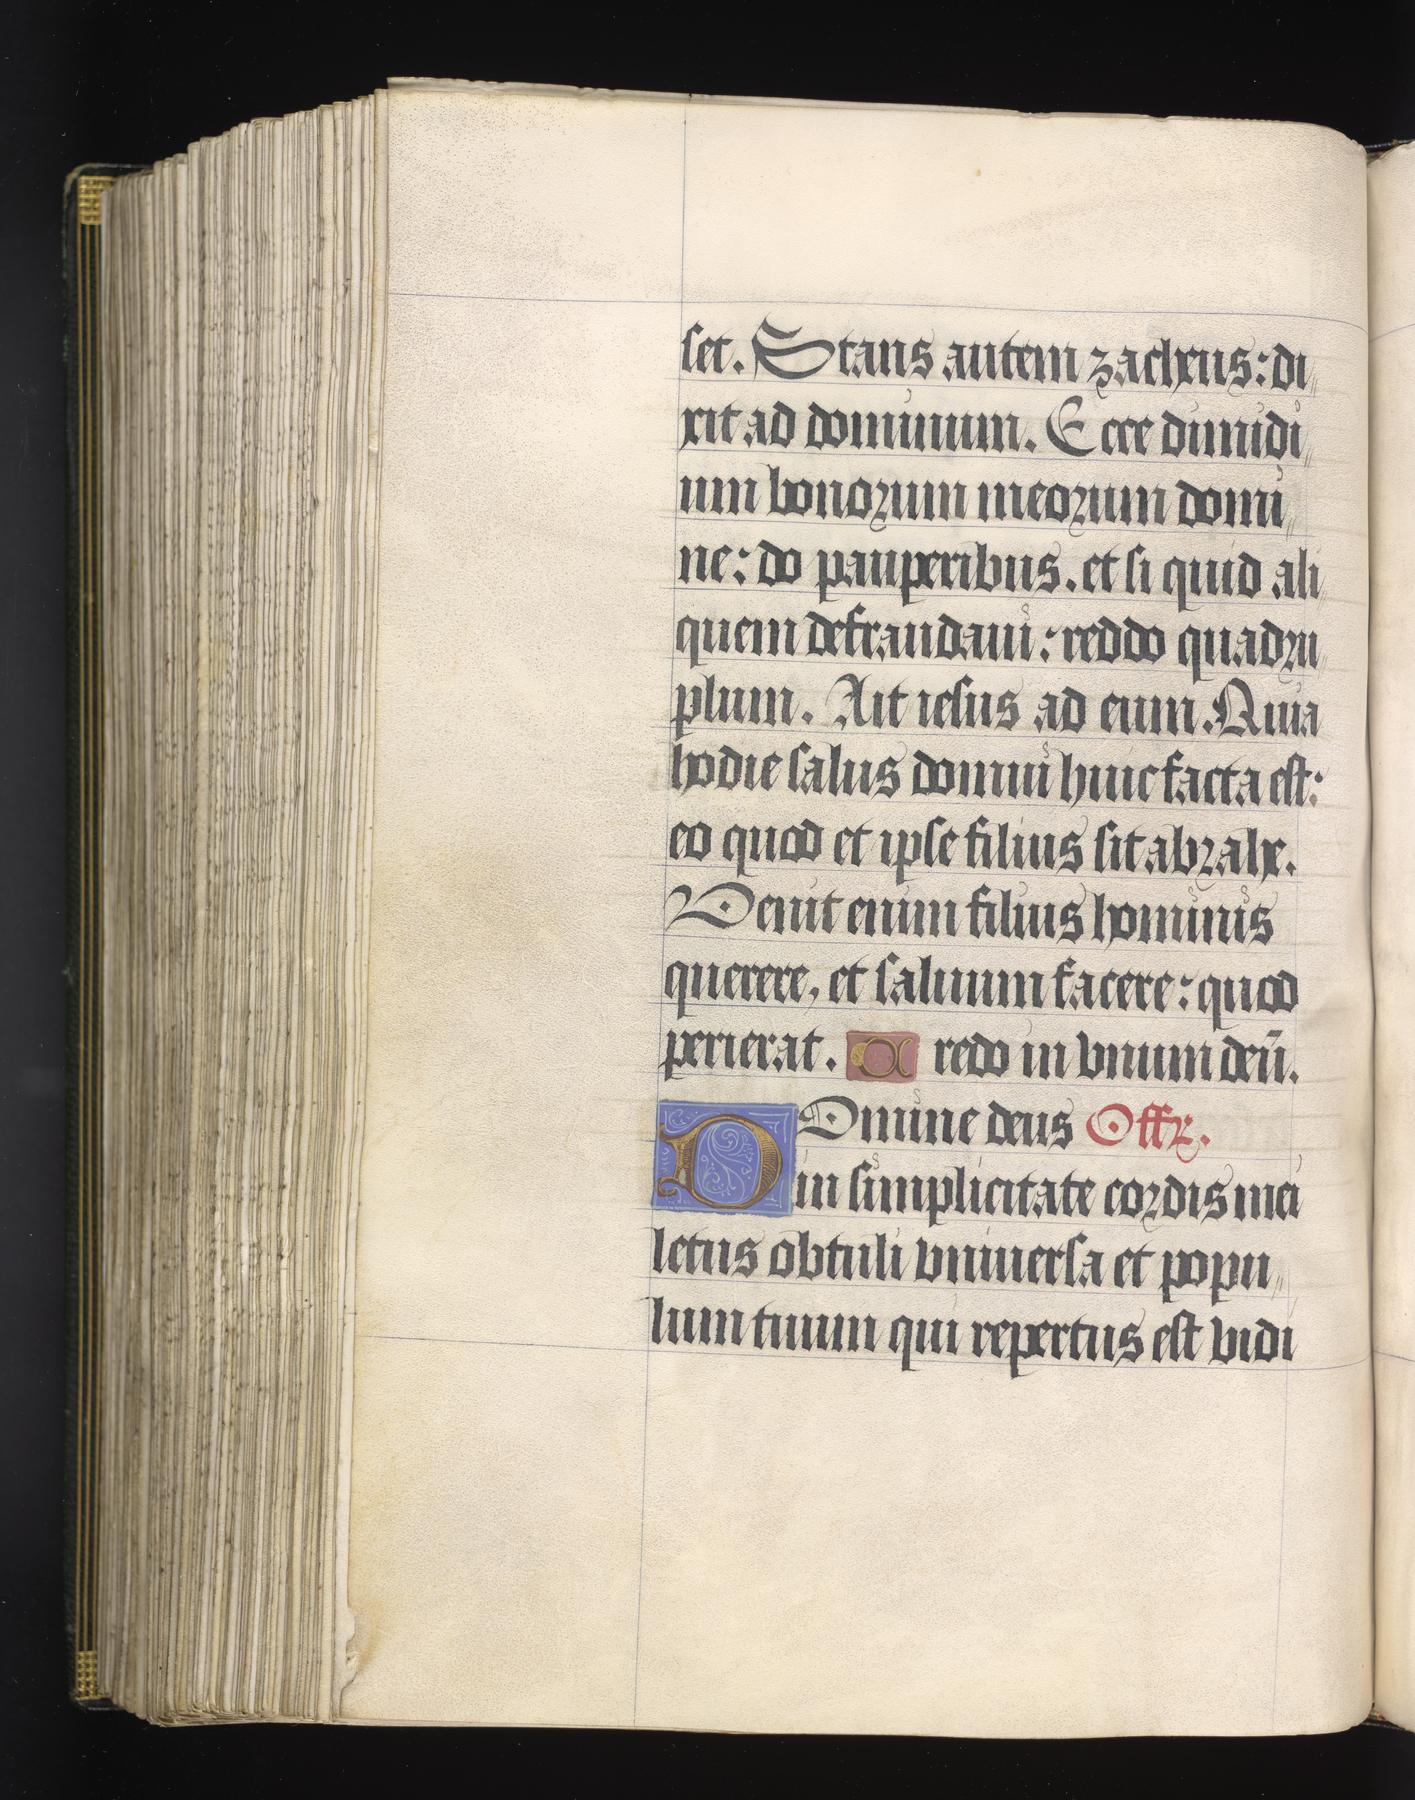 set. Stans autem zacheus: di
xit ad dominum. Ecce dimidi
um bonorum meorum domi
ne: do pauperibus. et si quid ali
quem defraudaui: reddo quadru
plum. Ait iesus ad eum. Quia
hodie salus domui huic facta est:
eo quod et ipse filius sit abrahe.
Venit enim filius hominis
querere, et saluum facere: quod
perierat. Credo in vnum deū.
DOmine deus Offr.
in simplicitate cordis mei
letus obtuli vniuersa et popu
lum tuum qui repertus est vidi